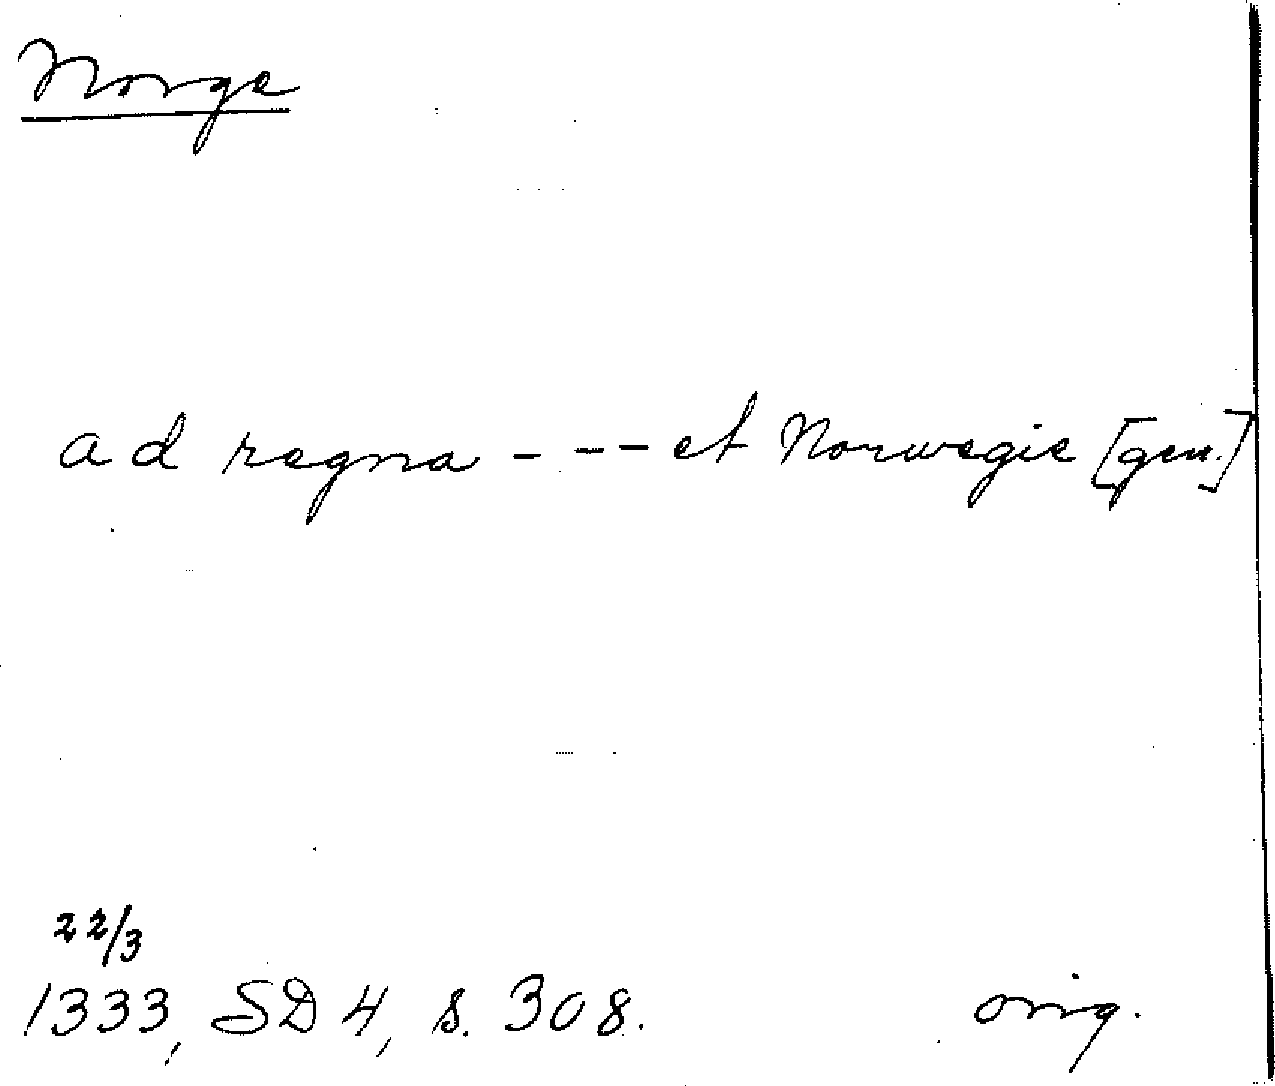 Norge
ad regna - - - et Norwegie [gen.]
22/3
1333, SD 4, s. 308. orig.